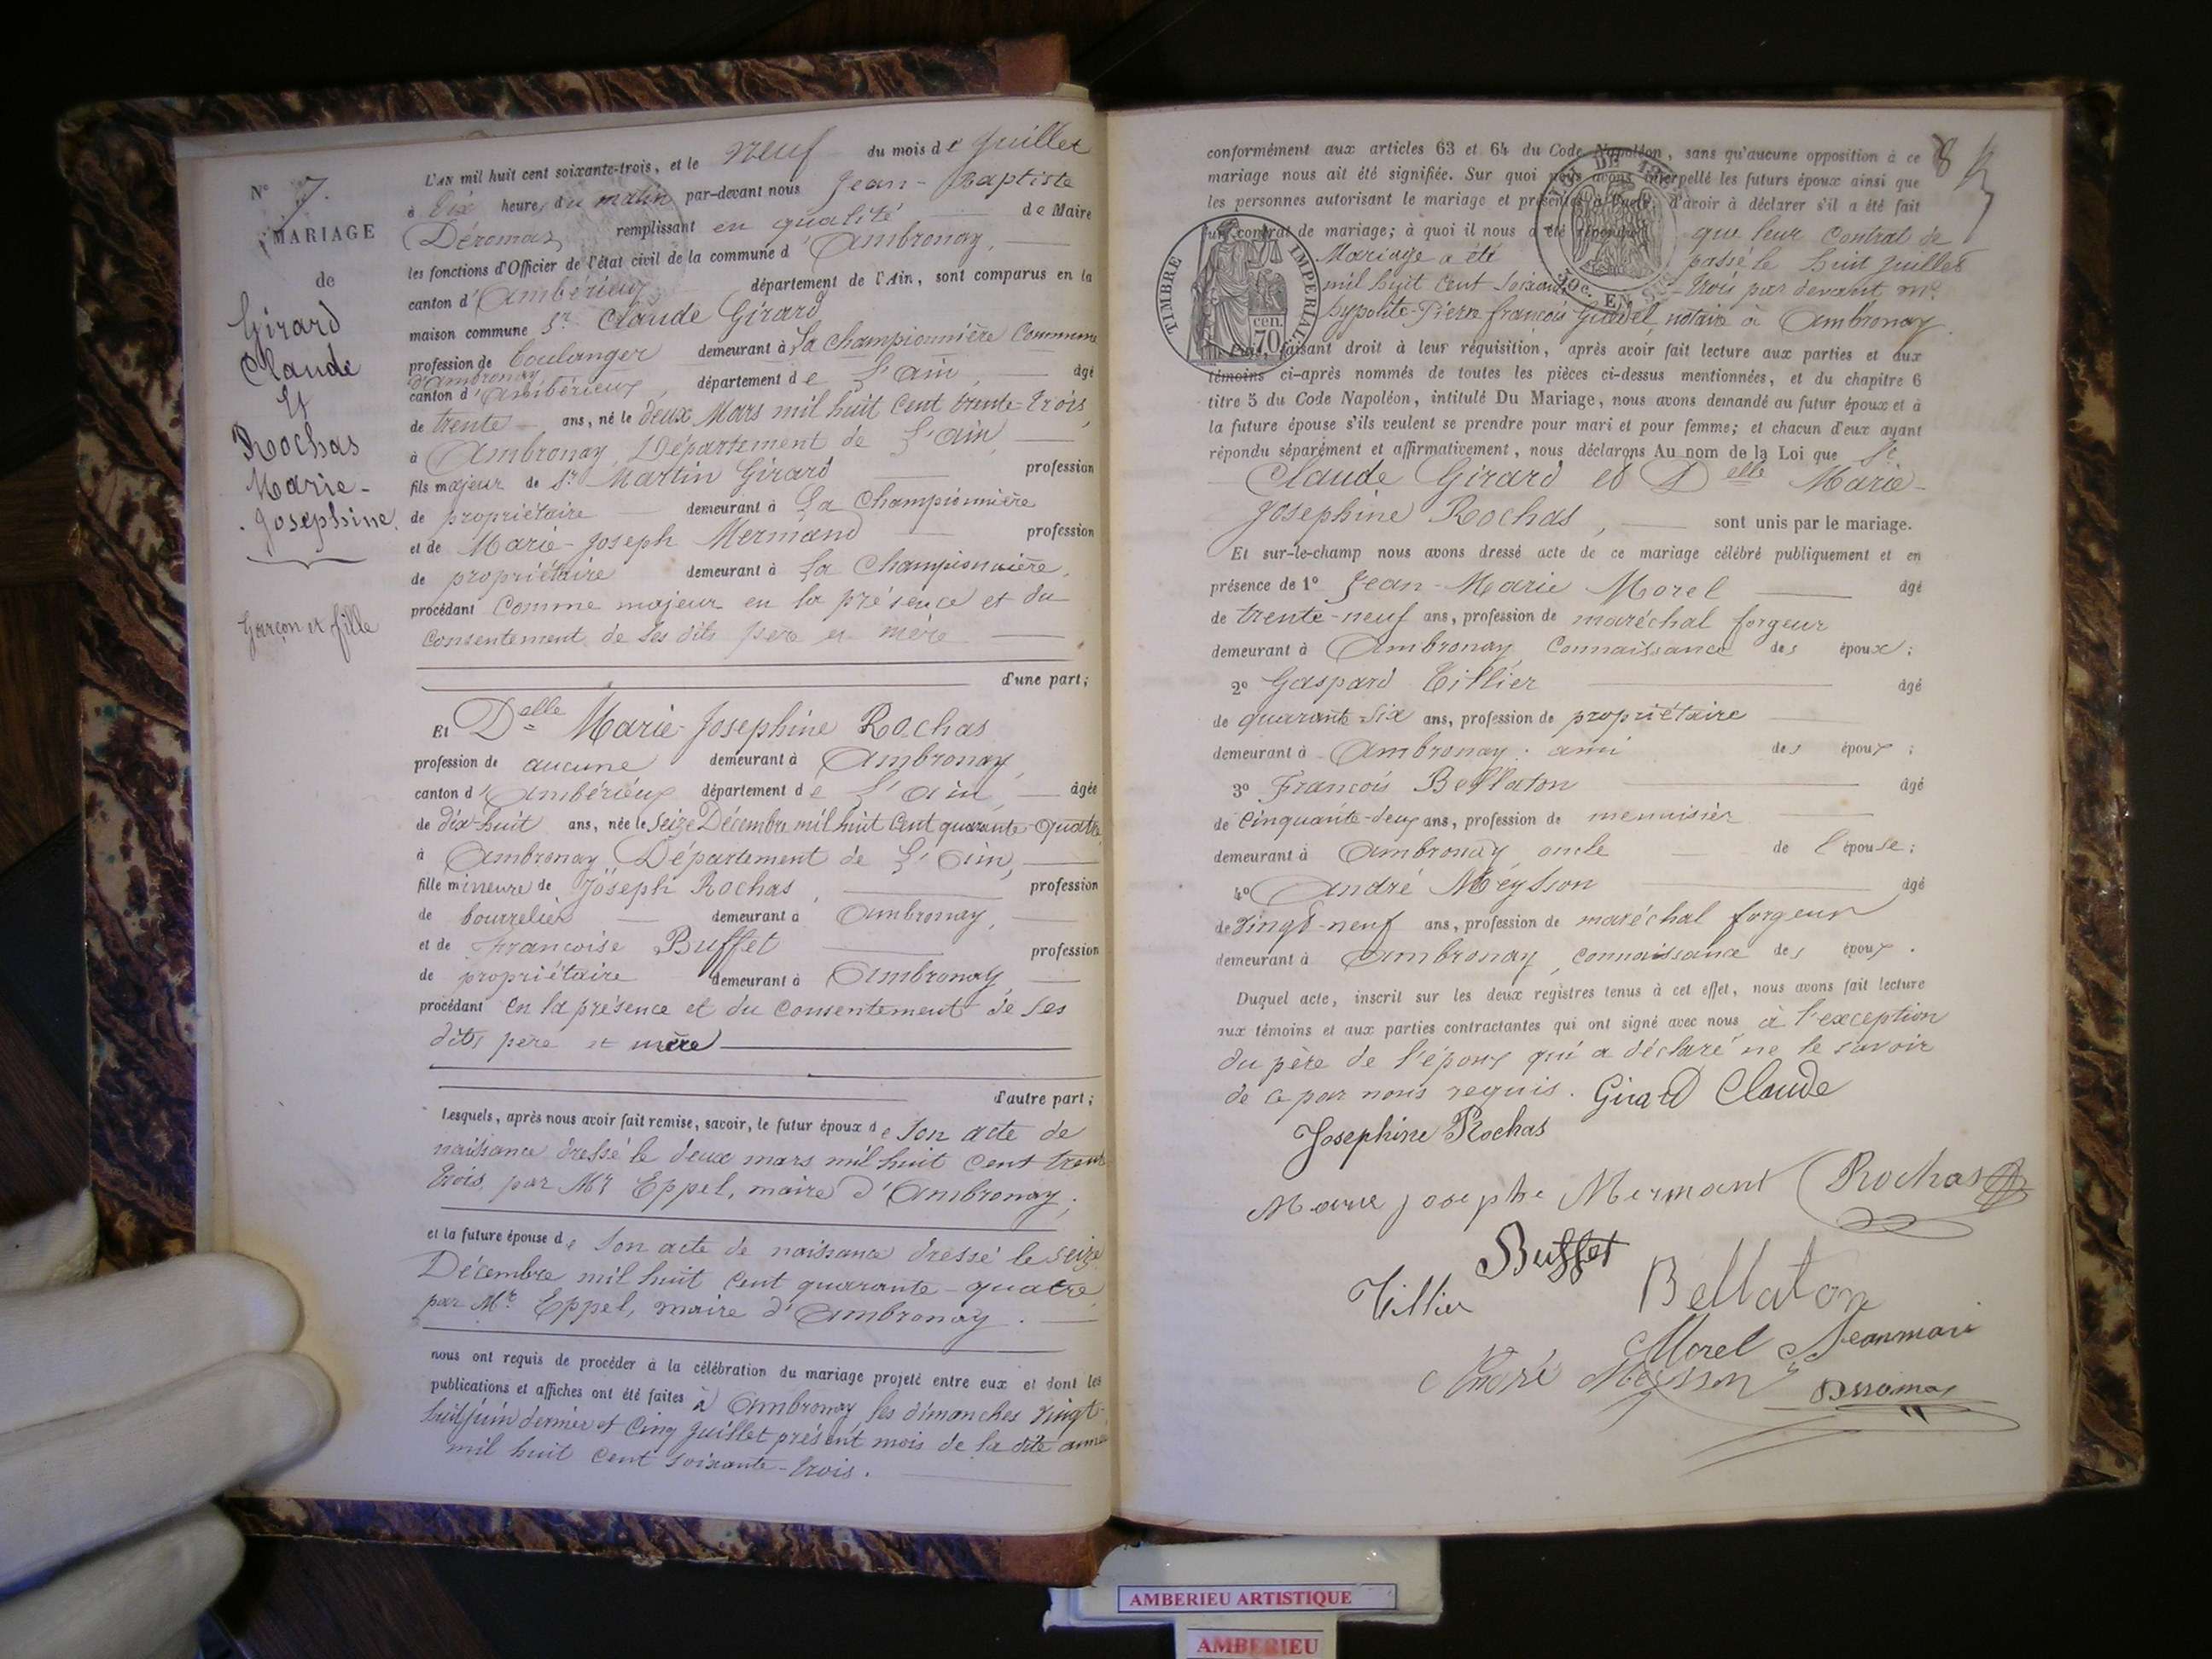 N° 7.
MARIAGE
de
Girard
Claude
Et
Rochas
Marie-
Josephine.
Garçon et fille
L'AN mil huit cent soixante-trois, et le neuf du mois de Juillet
à dix heures du matin par-devant nous Jean-Baptiste
Déromas remplissant en qualité de Maire
les fonctions d'Officier de l'état civil de la commune d'Ambronay,
canton d'Ambérieux département de l'Ain, sont comparus en la
maison commune Sr Claude Girard
profession de boulanger demeurant à La Championnière Commune
d'Ambronay
canton d'Ambérieux, département de L'ain, âgé
de trente ans, né le deux Mars mil huit cent trente-trois,
à Ambronay, Département de L'ain,
fils majeur de Sr Martin Girard profession
de propriétaire demeurant à La Championnière
et de Marie-Joseph Mermand profession
de propriétaire demeurant à La Championnière,
procédant comme majeur en la présence et du
consentement de ses dits père et mère
d'une part;
Et Delle Marie-Josephine Rochas
profession de aucune demeurant à Ambronay,
canton d'Ambérieux département de L'ain, âgée
de dix-huit ans, née le Seize Décembre mil huit cent quarante-quatre
à Ambronay, Département de L'Ain,
fille mineure de Joseph Rochas, profession
de bourrelier demeurant à Ambronay,
et de Francoise Buffet profession
de propriétaire demeurant à Ambronay,
procédant en la présence et du consentement de ses
dits père et mère
d'autre part;
Lesquels, après nous avoir fait remise, savoir, le futur époux de son acte de
naissance dressé le deux mars mil huit cent trente
trois, par Mr Eppel, maire d'Ambronay;
et la future épouse de son acte de naissance dressé le seize
Décembre mil huit cent quarante-quatre,
par Mr Eppel, maire d'Ambronay.
nous ont requis de procéder à la célébration du mariage projeté entre eux et dont les
publications et affiches ont été faites à Ambronay, les dimanches vingt-
huit juin dernier et cinq Juillet présent mois de la dite année
mil huit cent soixante-trois.
8
conformément aux articles 63 et 64 du Code Napoléon, sans qu'aucune opposition à ce
mariage nous ait été signifiée. Sur quoi nous avons interpellé les futurs époux ainsi que
les personnes autorisant le mariage et présentes à l'acte, d'avoir à déclarer s'il a été fait
un contrat de mariage; à quoi il nous a été répondu que leur contrat de
Mariage a été passé le huit juillet
mil huit cent soixante-trois par devant me
hypolite-Pierre françois notaire à Ambronay.
TIMBRE IMPERIAL
70 cen.
EN SUS
faisant droit à leur réquisition, après avoir fait lecture aux parties et aux
témoins ci-après nommés de toutes les pièces ci-dessus mentionnées, et du chapitre 6
titre 5 du Code Napoléon, intitulé Du Mariage, nous avons demandé au futur époux et à
la future épouse s'ils veulent se prendre pour mari et pour femme; et chacun d'eux ayant
répondu séparément et affirmativement, nous déclarons Au nom de la Loi que Sr
Claude Girard et Delle Marie-
Josephine Rochas, sont unis par le mariage.
Et sur-le-champ nous avons dressé acte de ce mariage célébré publiquement et en
présence de 1° Jean-Marie Morel âgé
de trente-neuf ans, profession de maréchal forgeur
demeurant à Ambronay, Connaissance des époux;
2° Gaspard Tillier âgé
de quarante six ans, profession de propriétaire
demeurant à Ambronay. ami des époux;
3° François Bellaton âgé
de cinquante-deux ans, profession de menuisier
demeurant à Ambronay, oncle de l'épouse;
4° André Meysson âgé
de vingt-neuf ans, profession de maréchal forgeur
demeurant à Ambronay, connaissance des époux.
Duquel acte, inscrit sur les deux registres tenus à cet effet, nous avons fait lecture
aux témoins et aux parties contractantes qui ont signé avec nous, à l'exception
du père de l'époux qui a déclaré ne le savoir
de ce par nous requis. Girard Claude
Josephine Rochas
Marie josephe Mermant Rochas
Buffet
Tillier Bellaton
Morel Jeanmari
André Meysson Deromas
AMBERIEU ARTISTIQUE
AMBERIEU